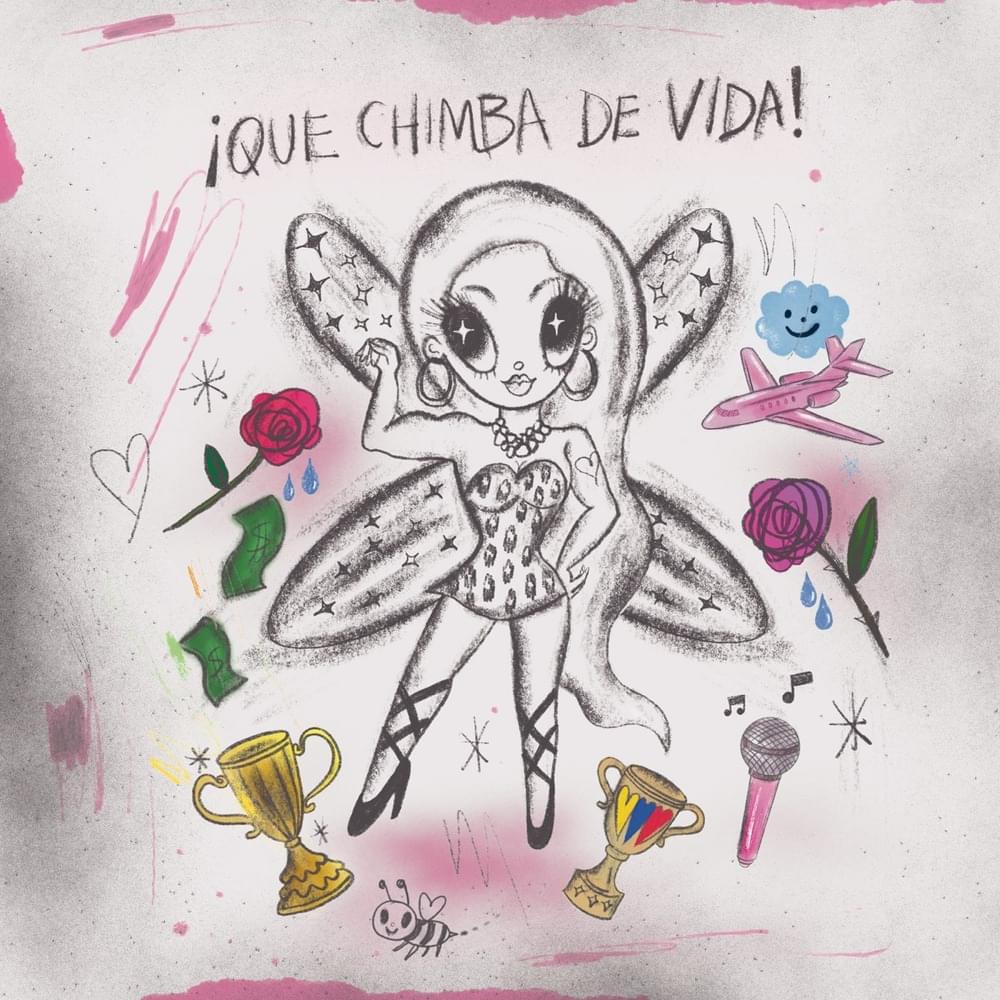 ¡QUE CHIMBA DE VIDA!
$
$